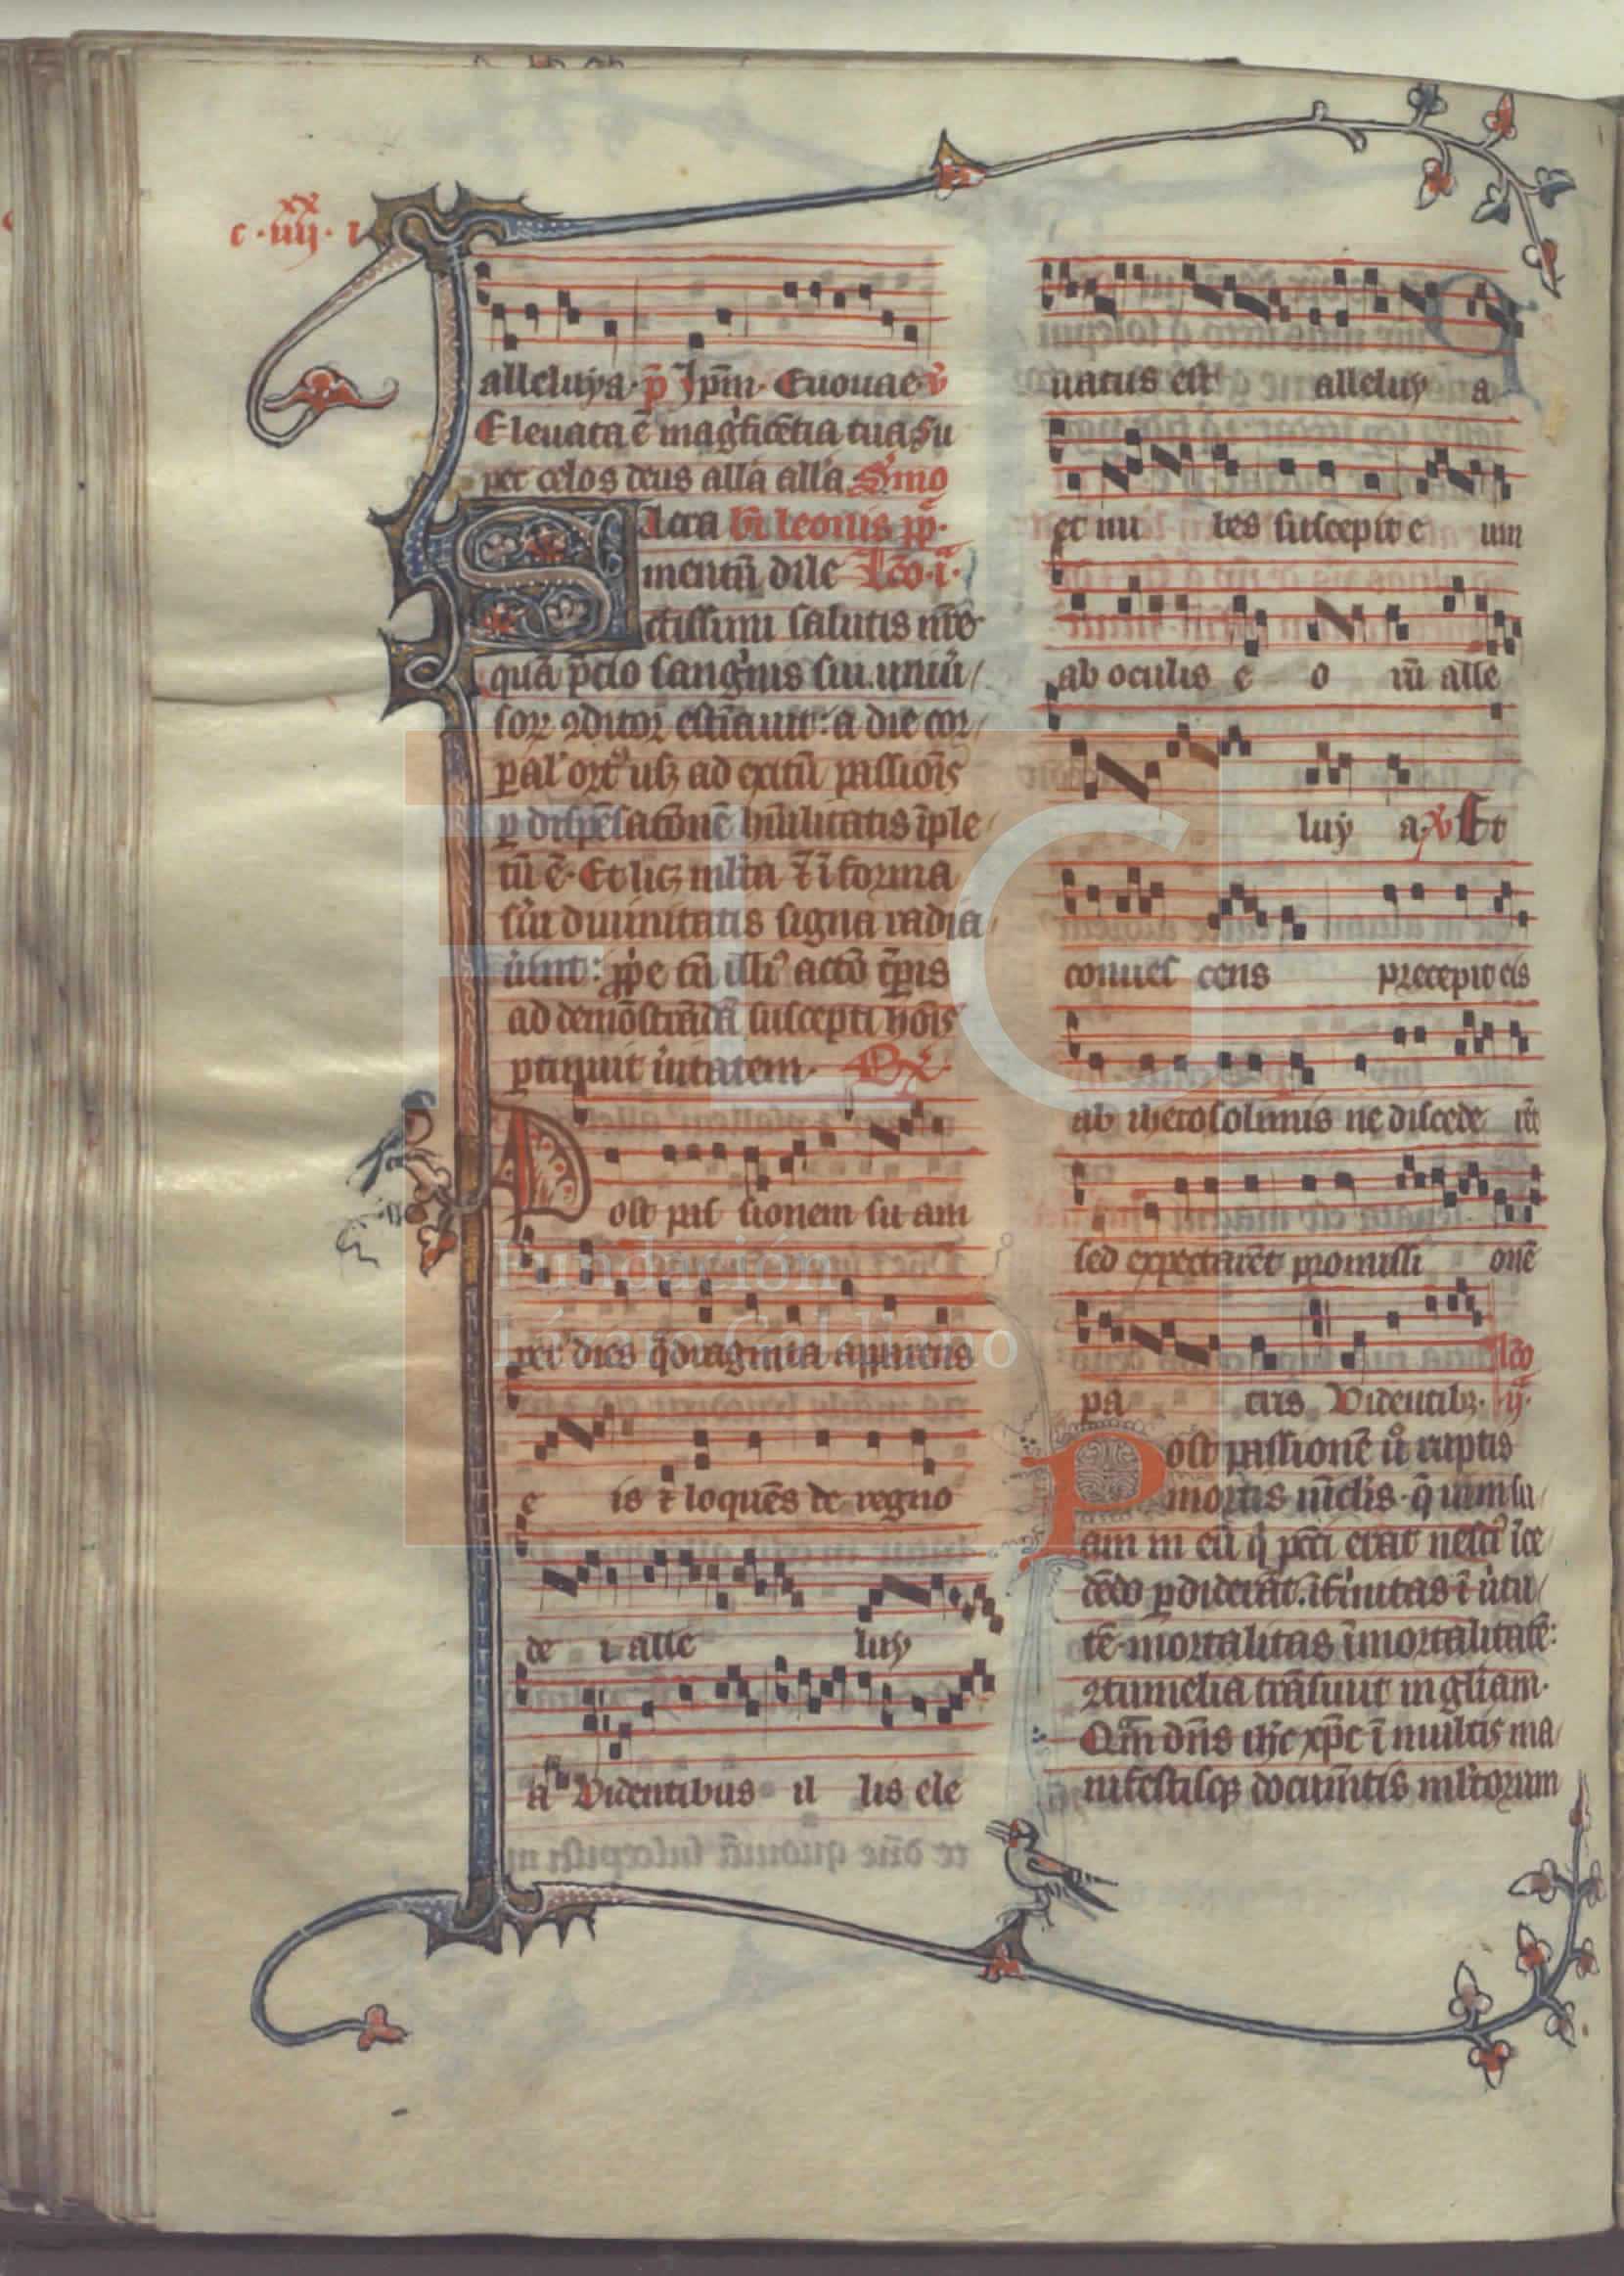 c .iiij. xx i
alleluya. p̄ Ip̄m. Euouae. v̄
Eleuata ē magͥficētia tua su
per celos deus all̓a all̓a Sermo
Sacra bīi leonis pp̄.
mentū dile Lc̄o .i.ᵃ
ctissimi salutis nr̄e
quā p̄cio sangͥnis sui uniū
soꝝ ꝯditor estīauit: a die cor
ꝑal' ort᷒ usꝫ ad exitū passiōis
ꝑ dispēsatōnē hūilitatis īple
tū ē. Et licꝫ ml̄ta ⁊ ī forma
sūi diuinitatis signa radia
ūint: ꝓp̄e tn̄ illi᷒ actō tp̄ris
ad demōstrādā suscepti hoīs
ꝑtinuit ūitatem. R̄x̄.
Post pas sionem su am
per dies qͣdraginta apparens
e is ⁊ loquēs de regno
de i alle luy
a Videntibus il lis ele
uatus est alleluy a
et nu bes suscepit e um
ab oculis e o rū alle
luy a. v̄ Et
conues cens precepit eis
ab iherosolimis ne discede rēt
sed expectarēt promissi onē
pa tris Videntibꝫ. Lc̄o ij.ᵃ
Post passionē ū ruptis
mortis uīclis. q̄ uim su
am in eū qͥ pcc̄i erat nesci᷒ īce
dēdo ꝑdiderāt. īfirmitas ī ūtu
tē. mortalitas īmortalitatē:
ꝯtumelia trāsiuit in gl̄iam.
Qm̄ dn̄s ihc xp̄c ī multis ma
nifestisqꝫ documētis ml̄torum
Fundación
Lázaro Galdiano
FLG